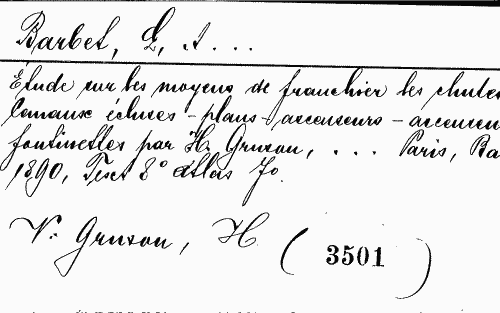 Barbet, L, A ...
Étude sur les moyens de franchier les chutes
canaux écluses - plans - ascenseurs - ascenseu
fontinettes par H. Gruson, ... Paris, Ba
1890, Text 8° atlas fo.
V. Gruson, H (3501)